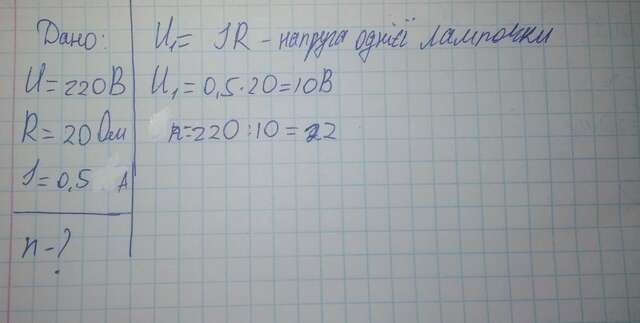 Дано:
U = 220В
R = 20 Ом
I = 0,5 А
n - ?
U₁ = IR - напруга однієї лампочки
U₁ = 0,5·20 = 10В
n = 220 : 10 = 22